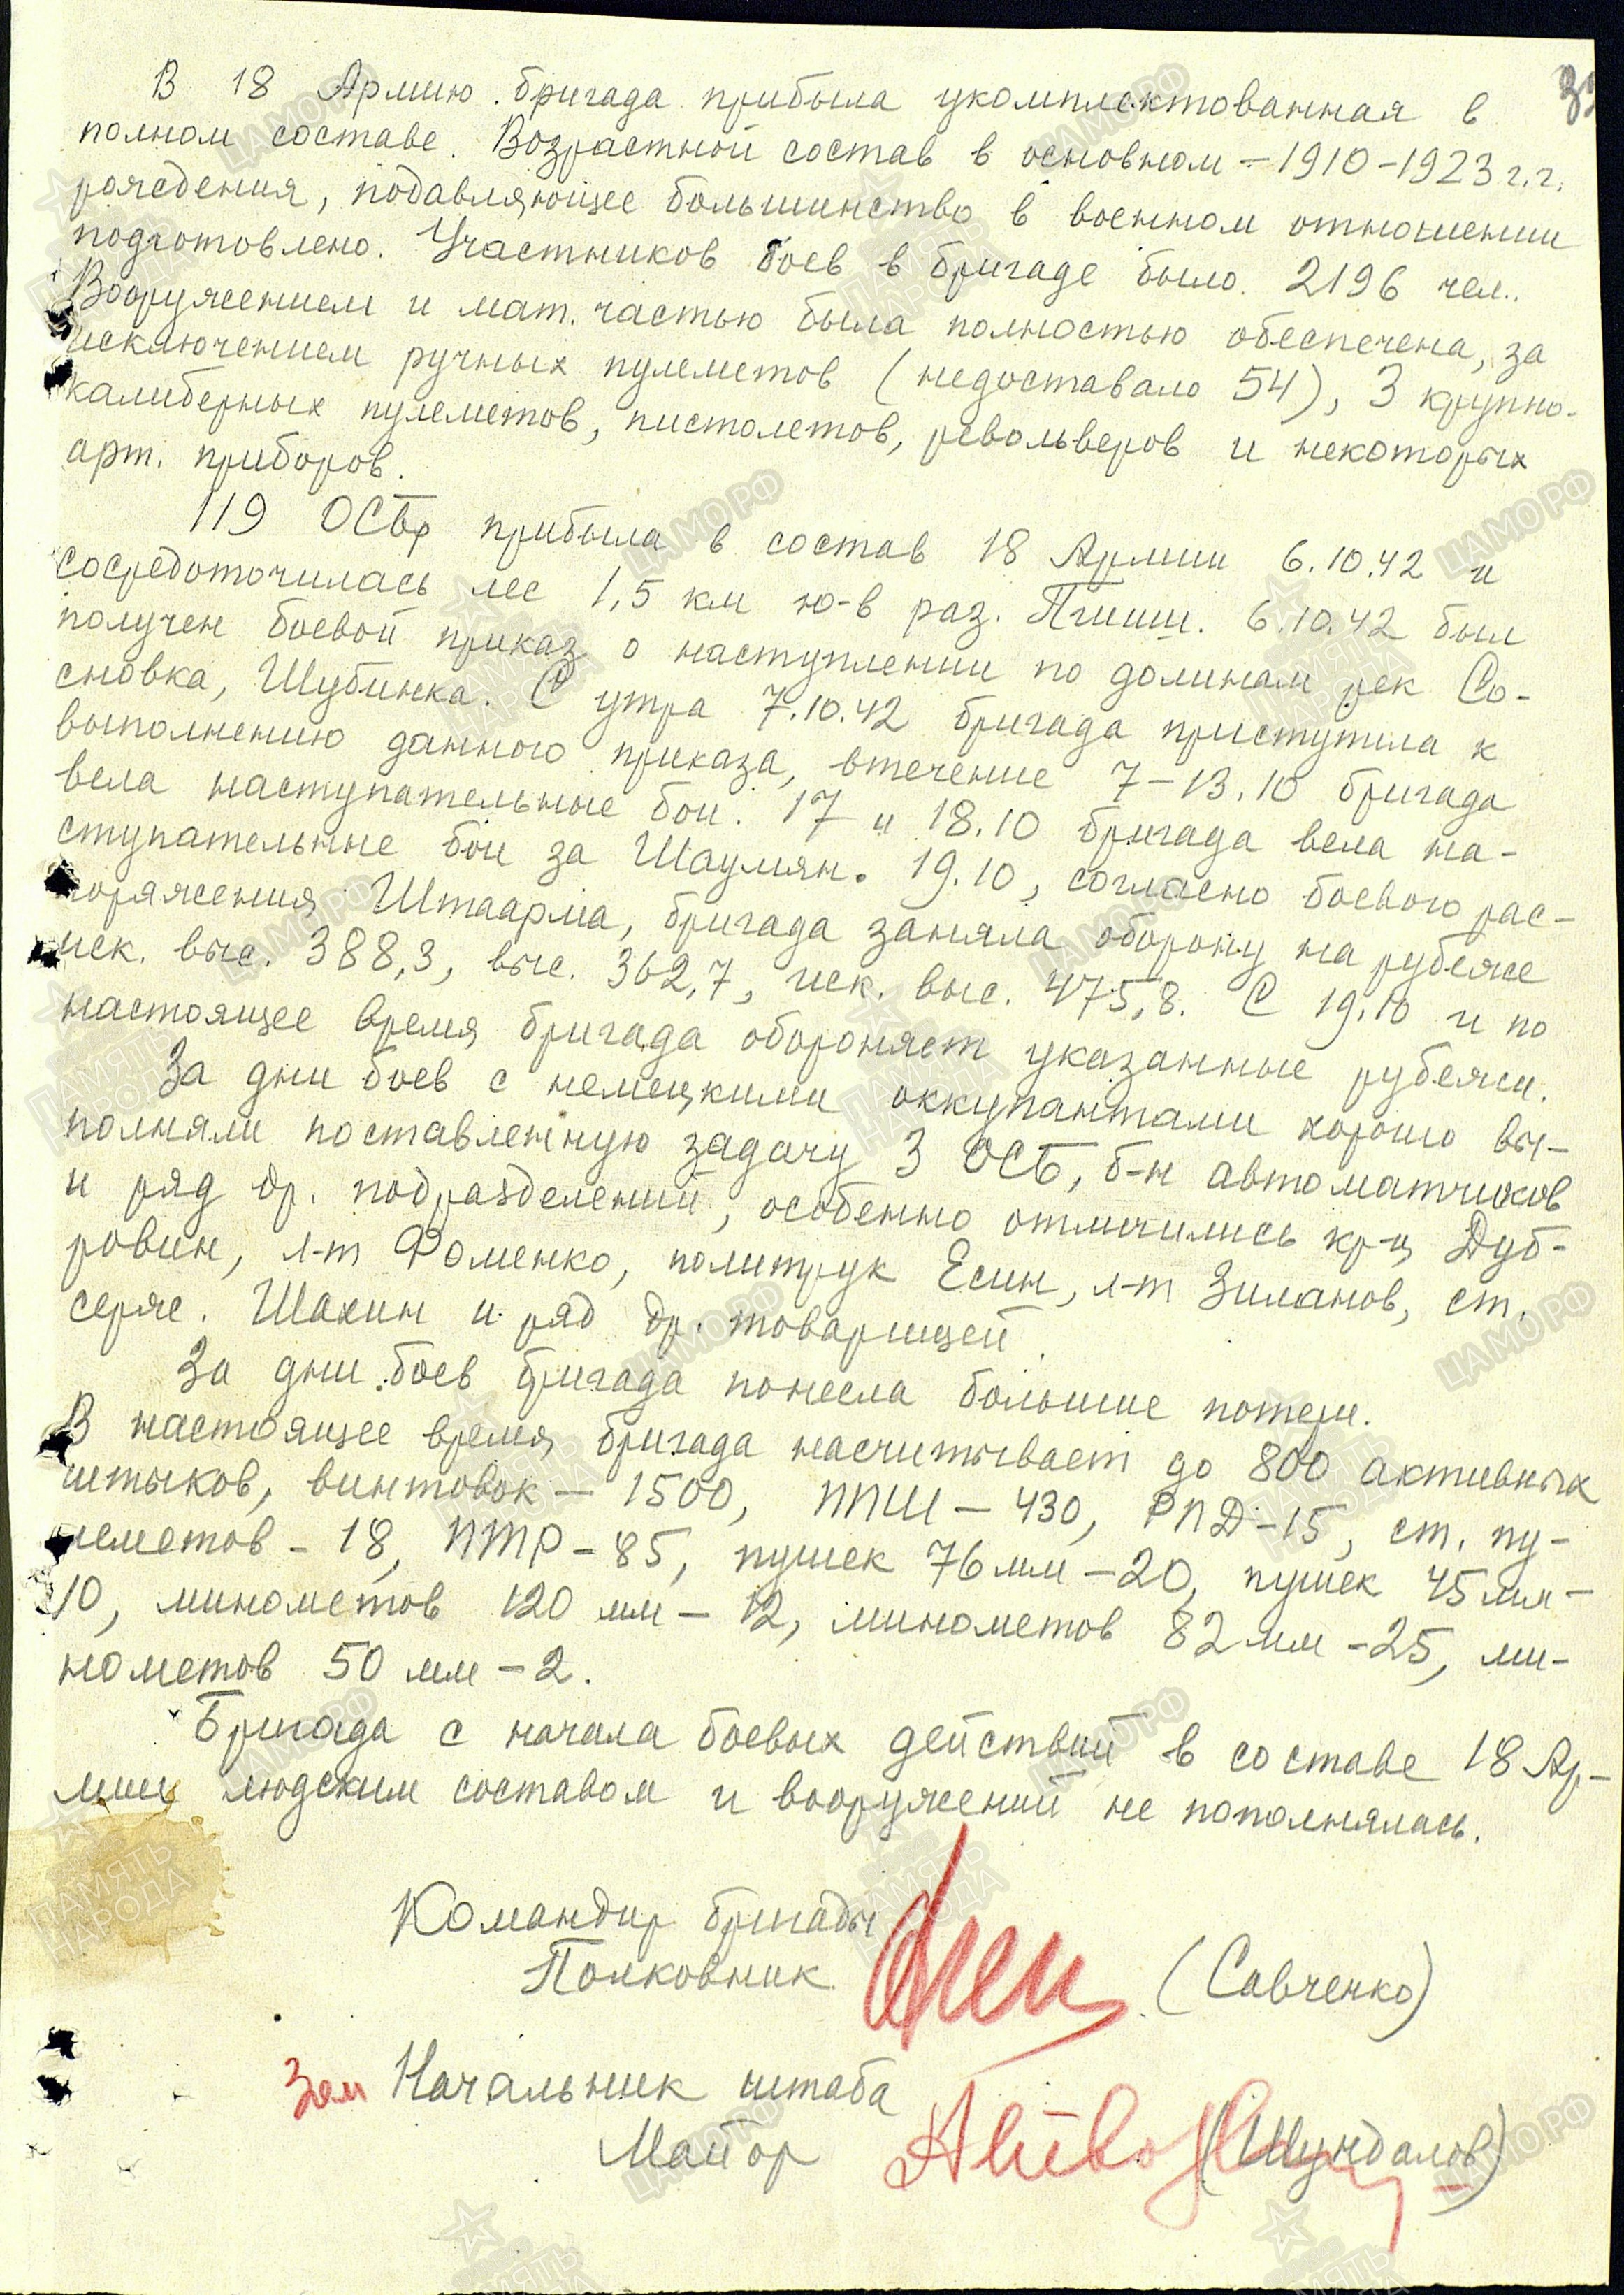 В 18 Армию бригада прибыла укомплектованная в
полном составе. Возрастной состав в основном – 1910–1923 г.г.
рождения, подавляющее большинство в военном отношении
подготовлено. Участников боев в бригаде было 2196 чел.
Вооружением и мат. частью была полностью обеспечена, за
исключением ручных пулеметов (недоставало 54), 3 крупно-
калиберных пулеметов, пистолетов, револьверов и некоторых
арт. приборов.
119 ОСБр прибыла в состав 18 Армии 6.10.42 и
сосредоточилась лес 1,5 км ю-в раз. Пшиш. 6.10.42 был
получен боевой приказ о наступлении по долинам рек Со-
сновка, Шубинка. С утра 7.10.42 бригада приступила к
выполнению данного приказа, втечение 7–13.10 бригада
вела наступательные бои. 17 и 18.10 бригада вела на-
ступательные бои за Шаумян. 19.10, согласно боевого рас-
поряжения Штаарма, бригада заняла оборону на рубеже
иск. выс. 388,3, выс. 362,7, иск. выс. 475,8. С 19.10 и по
настоящее время бригада обороняет указанные рубежи.
За дни боев с немецкими оккупантами хорошо вы-
полняли поставленную задачу 3 ОСБ, б-н автоматчиков
и ряд др. подразделений, особенно отличились кр-ц Дуб-
ровин, л-т Фоменко, политрук Есин, л-т Зиланов, ст.
серж. Шахин и ряд др. товарищей.
За дни боев бригада понесла большие потери.
В настоящее время бригада насчитывает до 800 активных
штыков, винтовок – 1500, ППШ – 430, РПД – 15, ст. пу-
леметов – 18, ПТР – 85, пушек 76 мм – 20, пушек 45 мм –
10, минометов 120 мм – 12, минометов 82 мм – 25, ми-
нометов 50 мм – 2.
Бригада с начала боевых действий в составе 18 Ар-
мии людским составом и вооружений не пополнялась.
Командир бригады
Полковник (Савченко)
Зам Начальник штаба
Майор (Шундалов)